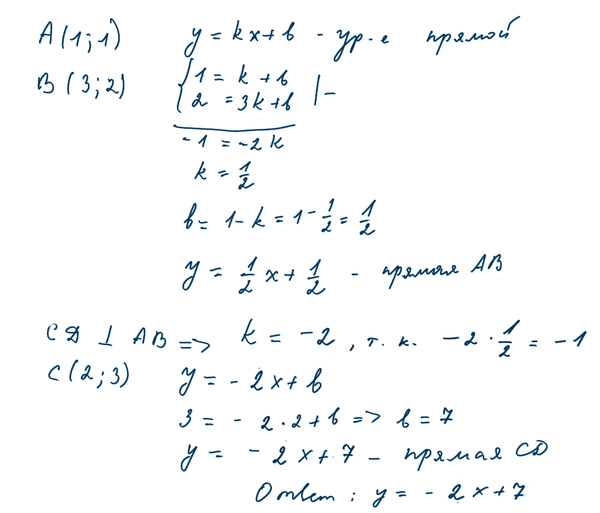 A(1;1) y = kx+b - ур-е прямой
B(3;2) { 1 = k+b
2 = 3k+b |-
-1 = -2k
k = 1/2
b = 1-k = 1-1/2 = 1/2
y = 1/2 x + 1/2 - прямая AB
CD ⊥ AB => k = -2, т.к. -2·1/2 = -1
C(2;3) y = -2x+b
3 = -2·2+b => b = 7
y = -2x+7 - прямая CD
Ответ: y = -2x+7